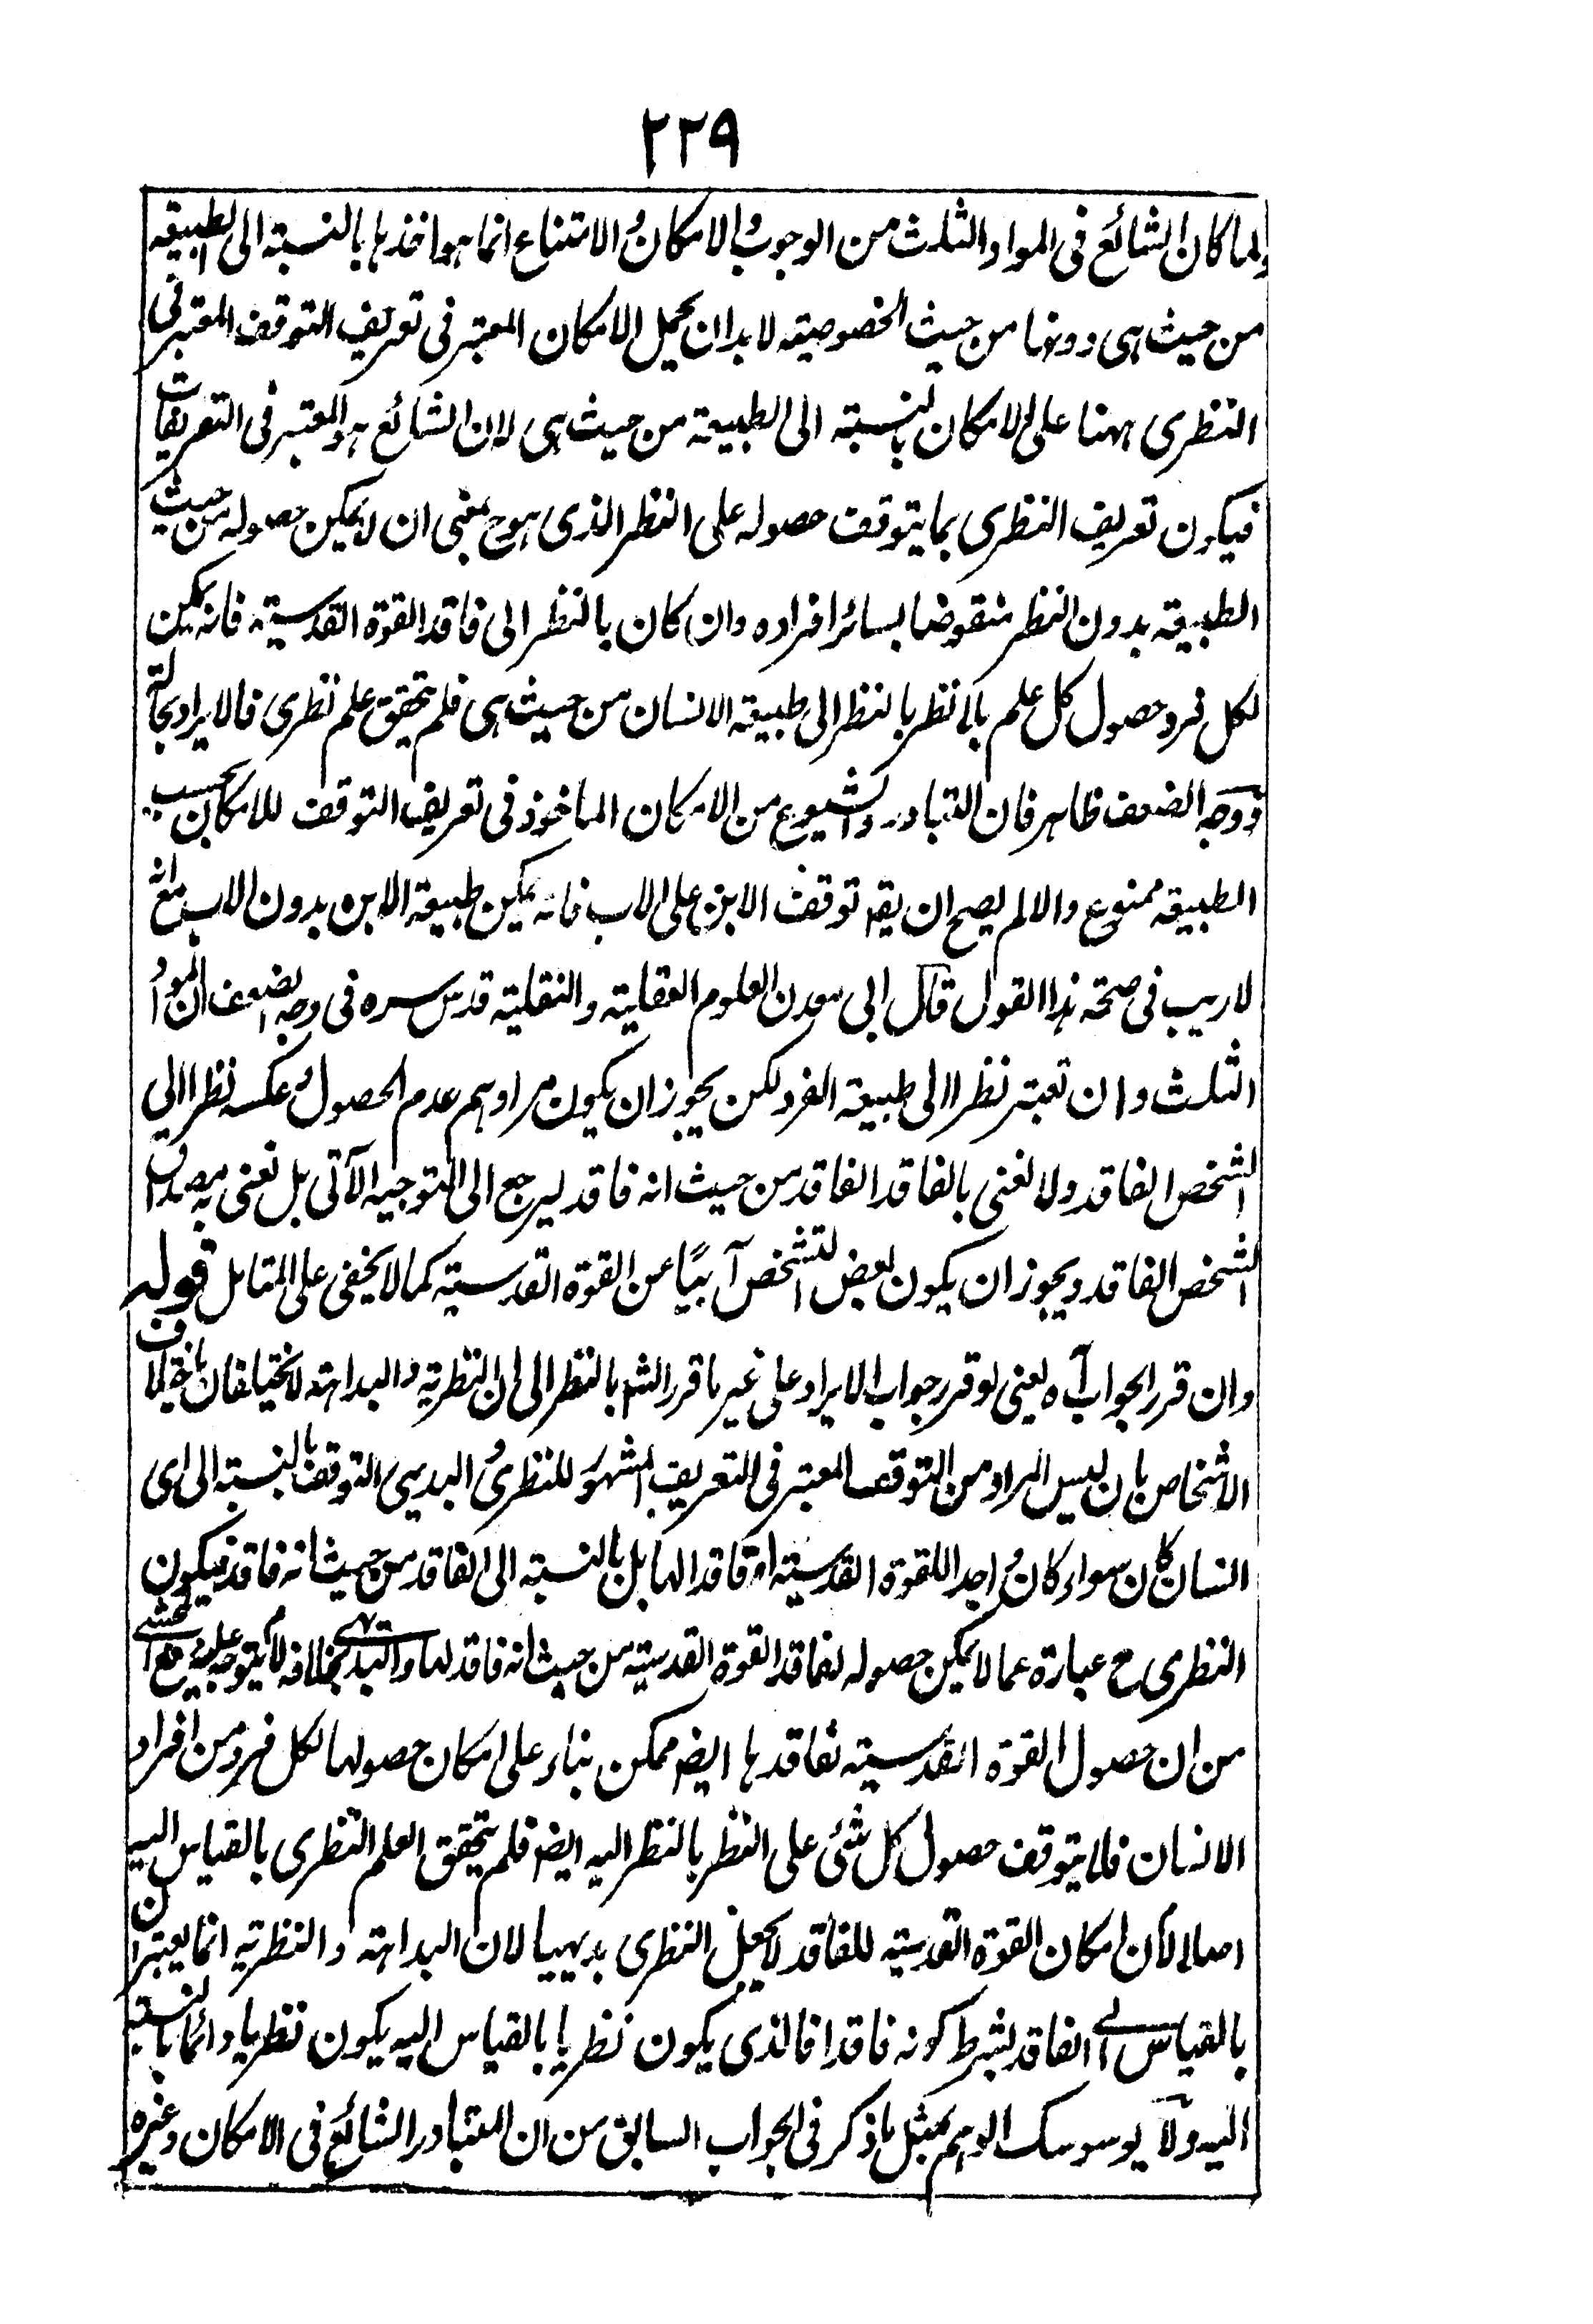 ٢٢٩
ولما كان الشائع فى المواد الثلث من الوجوب والامكان والامتناع انما هو اخذها بالنسبة الى الطبيعة
من حيث هى دونها من حيث الخصوصية لابد ان يحمل الامكان المعتبر فى تعريف التوقف المعتبر فى
النظرى ههنا على الامكان بالنسبة الى الطبيعة من حيث هى لان الشائع هو المعتبر فى التعريفات
فيكون تعريف النظرى بما يتوقف حصوله على النظر الذى هو ح بمعنى ان لا يمكن حصوله من حيث
الطبيعة بدون النظر منقوضا بسائر افراده وان كان بالنظر الى فاقد القوة القدسية فانه يمكن
لكل فرد حصول كل علم بلا نظر بالنظر الى طبيعة الانسان من حيث هى فلم يتحقق علم نظرى فالايراد بحاله
ووجه الضعف ظاهر فان التبادر والشيوع من الامكان الماخوذ فى تعريف التوقف للامكان بحسب
الطبيعة ممنوع والا لم يصح ان يقم توقف الابن على الاب فانه يمكن طبيعة الابن بدون الاب مع انه
لا ريب فى صحة هذا القول قال ابى معدن العلوم العقلية والنقلية قدس سره فى وجه الضعف ان المواد
الثلث وان تعتبر نظرا الى طبيعة الفرد لكن يجوز ان يكون مرادهم عدم الحصول وعكسه نظرا الى
الشخص الفاقد ولا نعنى بالفاقد الفاقد من حيث انه فاقد ليرجع الى التوجيه الآتى بل نعنى به مصداق
الشخص الفاقد ويجوز ان يكون بعض التشخص آبيًا عن القوة القدسية كما لا يخفى على المتامل قوله
وان قرر الجواب آه يعنى لو قرر جواب الايراد على غير ما قرر الشم بالنظر الى ان النظرية والبداهة لا تختلفان باختلاف
الاشخاص بان ليس المراد من التوقف المعتبر فى التعريف المشهور للنظرى والبديهى التوقف بالنسبة الى اى
انسان كان سواء كان واجدا للقوة القدسية او فاقدا لها بل بالنسبة الى الفاقد من حيث انه فاقد فيكون
النظرى ح عبارة عما لا يمكن حصوله لفاقد القوة القدسية من حيث انه فاقد لها والبديهى بخلافه لا يتوجه عليه منع المحشى
من ان حصول القوة القدسية لفاقدها ايضم ممكن بناء على امكان حصولها لكل فرد من افراد
الانسان فلا يتوقف حصول كل شئى على النظر بالنظر اليه ايضم فلم يتحقق العلم النظرى بالقياس اليه
اصلا لان امكان القوة القدسية للفاقد لا يجعل النظرى بديهيا لان البداهة والنظرية انما يعتبران
بالقياس الى الفاقد بشرط كونه فاقدا فالذى يكون نظريا بالقياس اليه يكون نظريا دائما بالنسبة
اليه ولا يوسوسك الوهم بمثل ما ذكر فى الجواب السابق من ان المتبادر الشائع فى الامكان وغيره